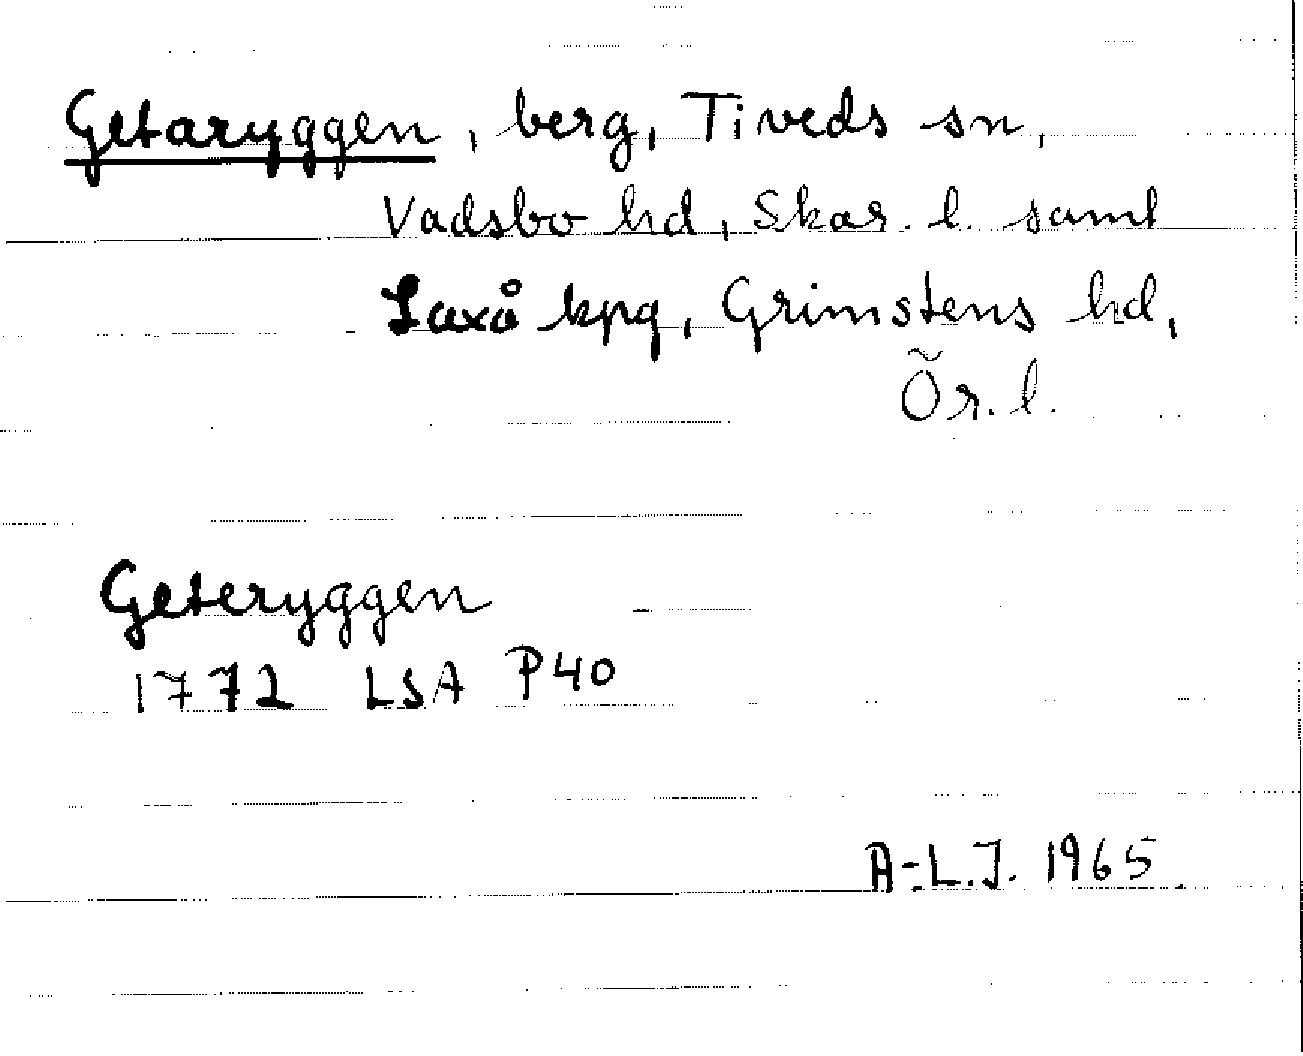 Getaryggen, berg, Tiveds sn,
Vadsbo hd, Skar. l. samt
Laxå kpg, Grimstens hd,
Ör. l.
Geteryggen
1772 LSA P40
A-L.J. 1965.